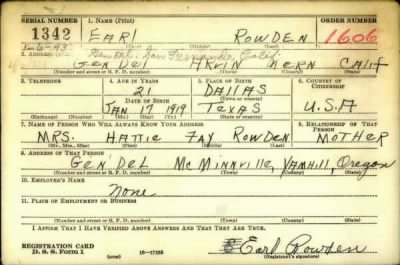 SERIAL NUMBER 1. NAME (Print) ORDER NUMBER
1342 EARl ROWDEN 1606
(First) (Middle) (Last)
1-6-43 San Fernando, Calif.
2. ADDRESS (Print)
GEN DEl ARVIN KERN CALIF
(Number and street or R. F. D. number) (Town) (County) (State)
3. TELEPHONE 4. AGE IN YEARS 5. PLACE OF BIRTH 6. COUNTRY OF CITIZENSHIP
21 DALLAS
DATE OF BIRTH (Town or county)
JAN 17 1919 TEXAS U.S.A
(Exchange) (Number) (Mo.) (Day) (Yr.) (State or country)
7. NAME OF PERSON WHO WILL ALWAYS KNOW YOUR ADDRESS 8. RELATIONSHIP OF THAT PERSON
MRS. HATTIE FAY ROWDEN MOTHER
(Mr., Mrs., Miss) (First) (Middle) (Last)
9. ADDRESS OF THAT PERSON
GEN DEL McMINNVILLE, YAMHILL, OREGON
(Number and street or R. F. D. number) (Town) (County) (State)
10. EMPLOYER'S NAME
NONE
11. PLACE OF EMPLOYMENT OR BUSINESS
(Number and street or R. F. D. number) (Town) (County) (State)
I AFFIRM THAT I HAVE VERIFIED ABOVE ANSWERS AND THAT THEY ARE TRUE.
REGISTRATION CARD
D. S. S. Form 1 (over) 16-17105 Earl Rowden
(Registrant's signature)